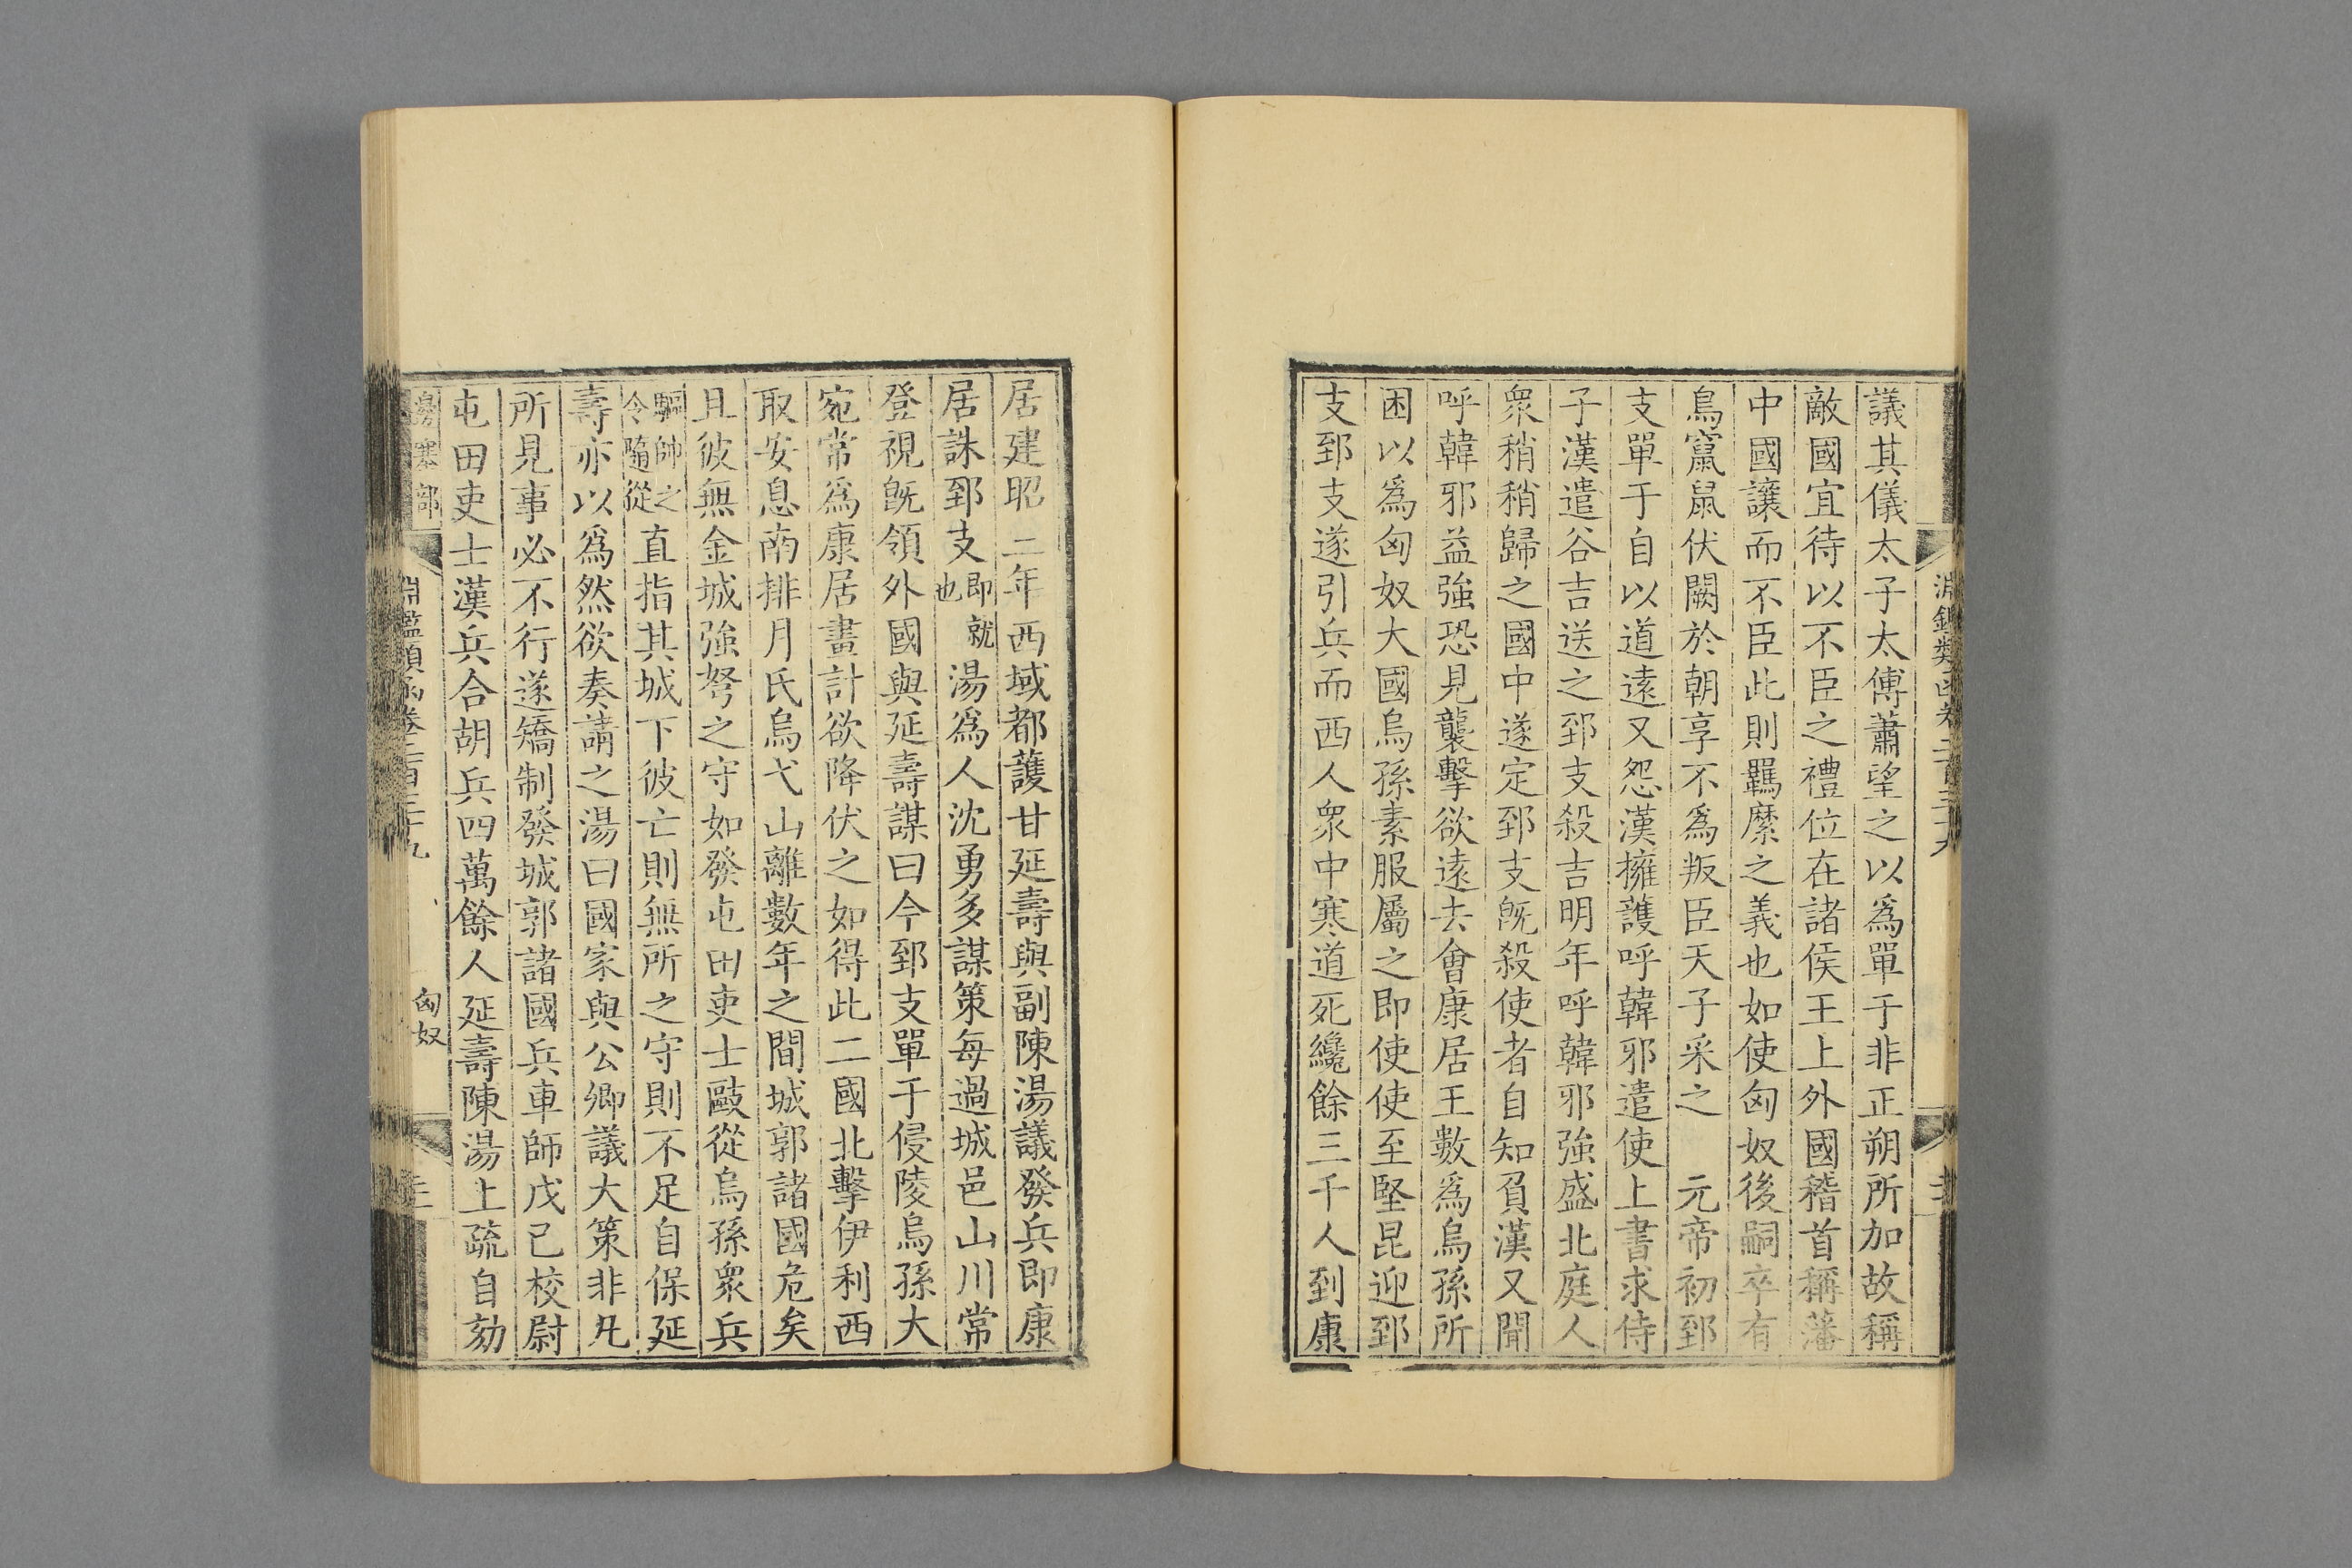 議其儀太子太傅蕭望之以爲單于非正朔所加故稱
敵國宜待以不臣之禮位在諸侯王上外國稽首稱藩
中國讓而不臣此則羈縻之義也如使匈奴後嗣卒有
鳥竄鼠伏闕於朝享不爲叛臣天子采之 元帝初郅
支單于自以道遠又怨漢擁護呼韓邪遣使上書求侍
子漢遣谷吉送之郅支殺吉明年呼韓邪強盛北庭人
衆稍稍歸之國中遂定郅支旣殺使者自知負漢又聞
呼韓邪益強恐見襲擊欲遠去會康居王數爲烏孫所
困以爲匈奴大國烏孫素服屬之即使使至堅昆迎郅
支郅支遂引兵而西人衆中寒道死纔餘三千人到康
居建昭二年西域都護甘延壽與副陳湯議發兵即康
居誅郅支即就也湯爲人沈勇多謀策每過城邑山川常
登視旣領外國與延壽謀曰今郅支單于侵陵烏孫大
宛常爲康居畫計欲降伏之如得此二國北擊伊利西
取安息南排月氏烏弋山離數年之間城郭諸國危矣
且彼無金城強弩之守如發屯田吏士敺從烏孫衆兵
驅帥之令隨從直指其城下彼亡則無所之守則不足自保延
壽亦以爲然欲奏請之湯曰國家與公卿議大策非凡
所見事必不行遂矯制發城郭諸國兵車師戊己校尉
屯田吏士漢兵合胡兵四萬餘人延壽陳湯上疏自劾
邊塞部
淵鑑類函卷二百三十九
匈奴